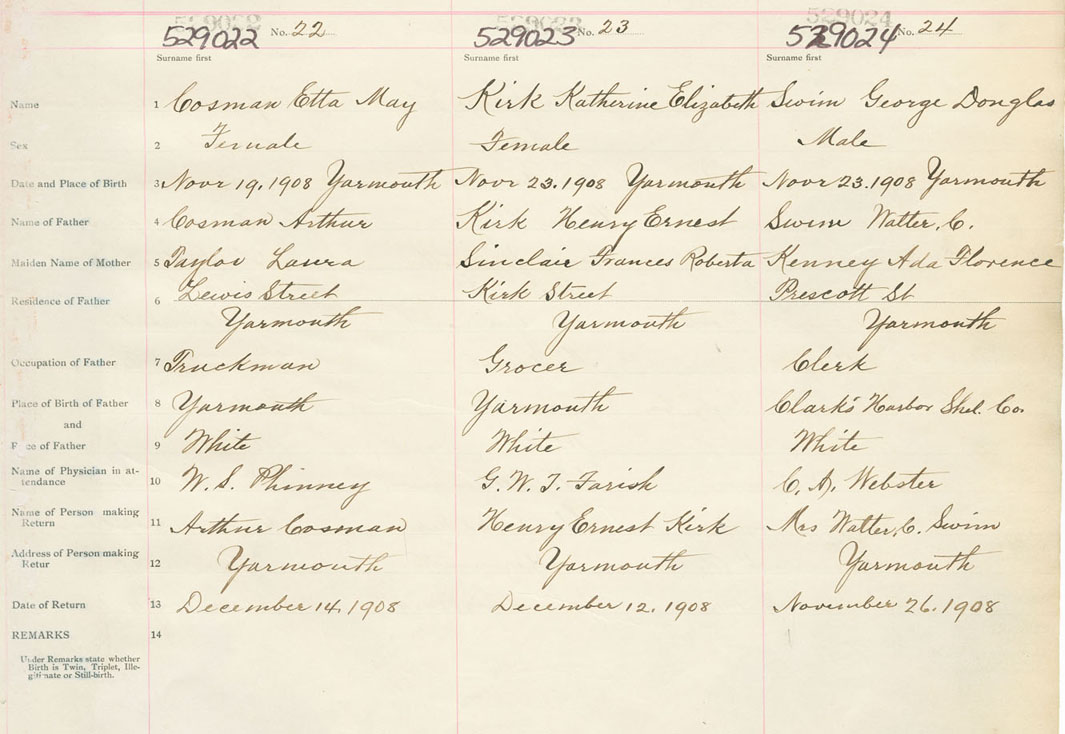 529022 529023 529024
529022 No. 22 529023 No. 23 529024 No. 24
Surname first Surname first Surname first
Name 1 Cosman Etta May Kirk Katherine Elizabeth Swim George Douglas
Sex 2 Female Female Male
Date and Place of Birth 3 Novr 19, 1908 Yarmouth Novr 23. 1908 Yarmouth Novr 23. 1908 Yarmouth
Name of Father 4 Cosman Arthur Kirk Henry Ernest Swim Walter, C.
Maiden Name of Mother 5 Taylor Laura Sinclair Frances Roberta Kenney Ada Florence
Residence of Father 6 Lewis Street Kirk Street Prescott St
Yarmouth Yarmouth Yarmouth
Occupation of Father 7 Truckman Grocer Clerk
Place of Birth of Father 8 Yarmouth Yarmouth Clark's Harbor Shel. Co.
and
Race of Father 9 White White White
Name of Physician in at-
tendance 10 W. S. Phinney G. W. T. Farish C. A. Webster
Name of Person making
Return 11 Arthur Cosman Henry Ernest Kirk Mrs Walter, C. Swim
Address of Person making
Retur 12 Yarmouth Yarmouth Yarmouth
Date of Return 13 December 14, 1908 December 12, 1908 November 26. 1908
REMARKS 14
Under Remarks state whether
Birth is Twin, Triplet, Ille-
gitimate or Still-birth.